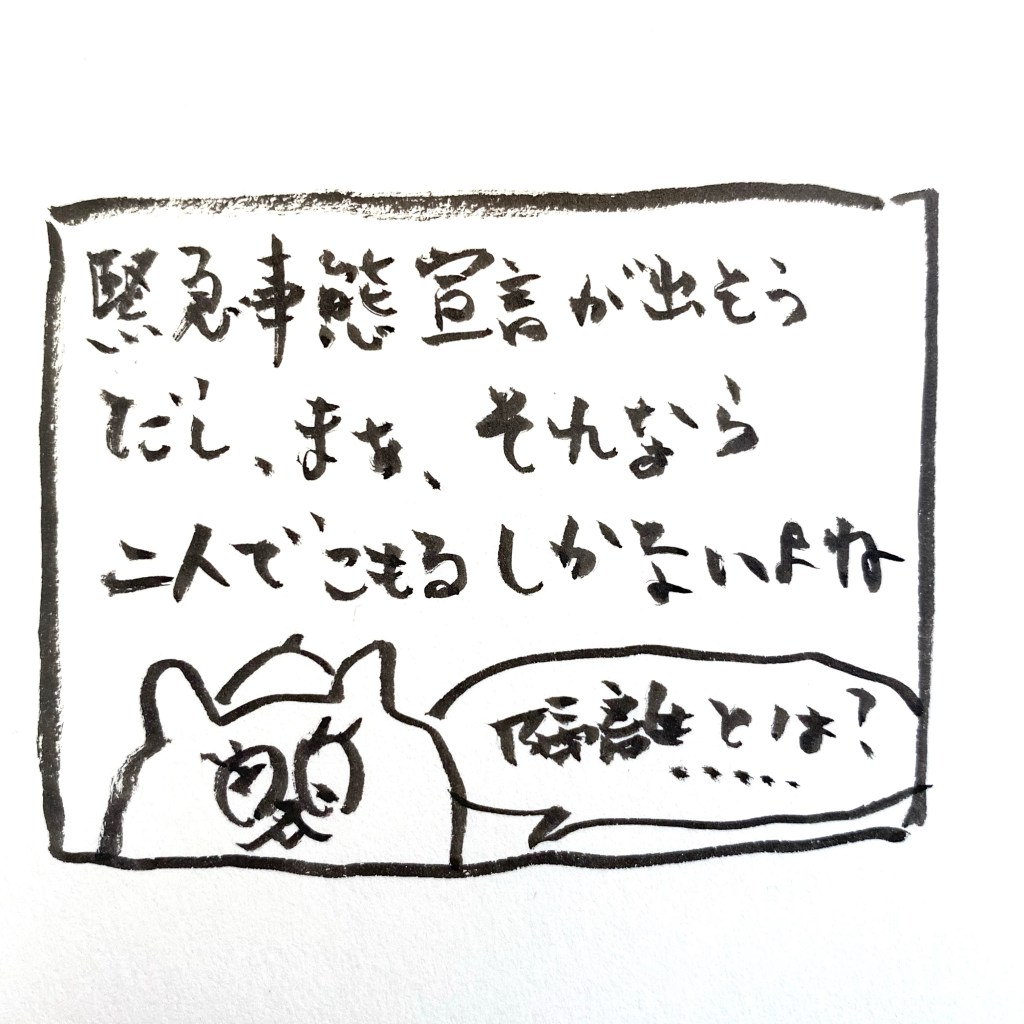 緊急事態宣言が出そう
だし、まぁ、それなら
二人でこもるしかないよね
隔離とは?
.....